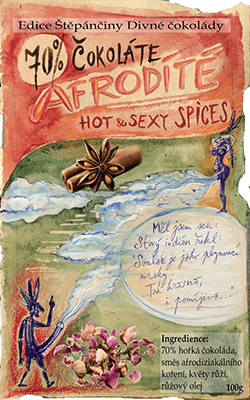 Edice Štěpánčiny Divné čokolády
70% ČOKOLÁTE
AFRODITÉ
HOT & SEXY SPICES
Měl jsem sen:
Starý indián řekl:
Soulož je jako plynoucí
mraky...
Tak krásné,
i pomíjivé..."
Ingredience:
70% hořká čokoláda,
směs afrodiziakálního
koření, květy růží,
růžový olej
100g